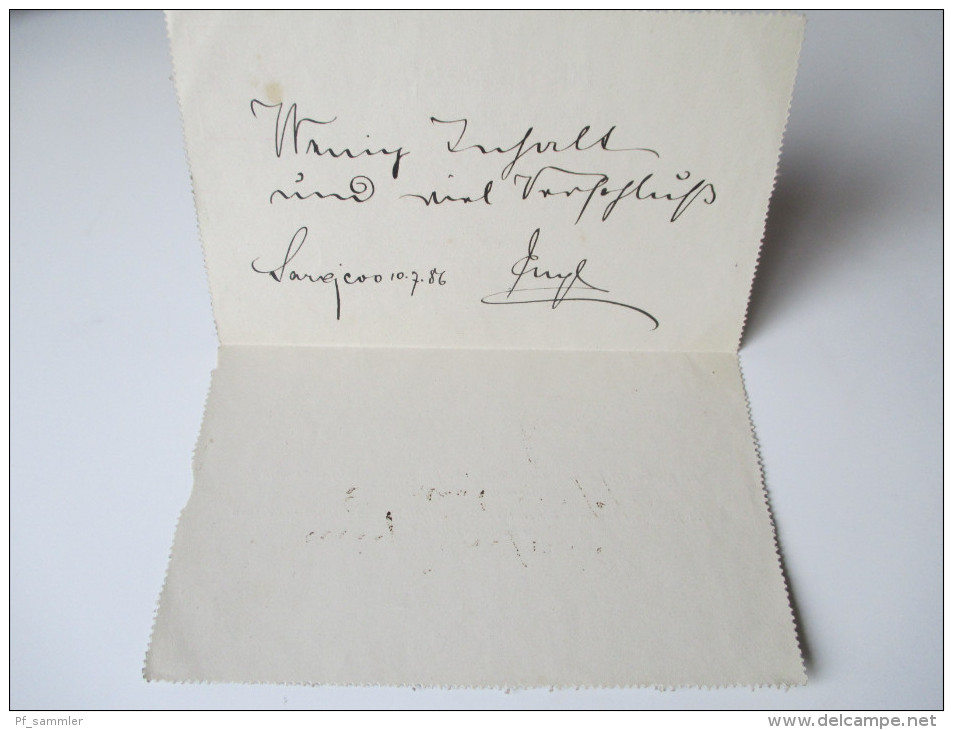 Wenig Inhalt
und viel Verschluß
Sarajevo 10.7.86
Pf_sammler
www.delcampe.net